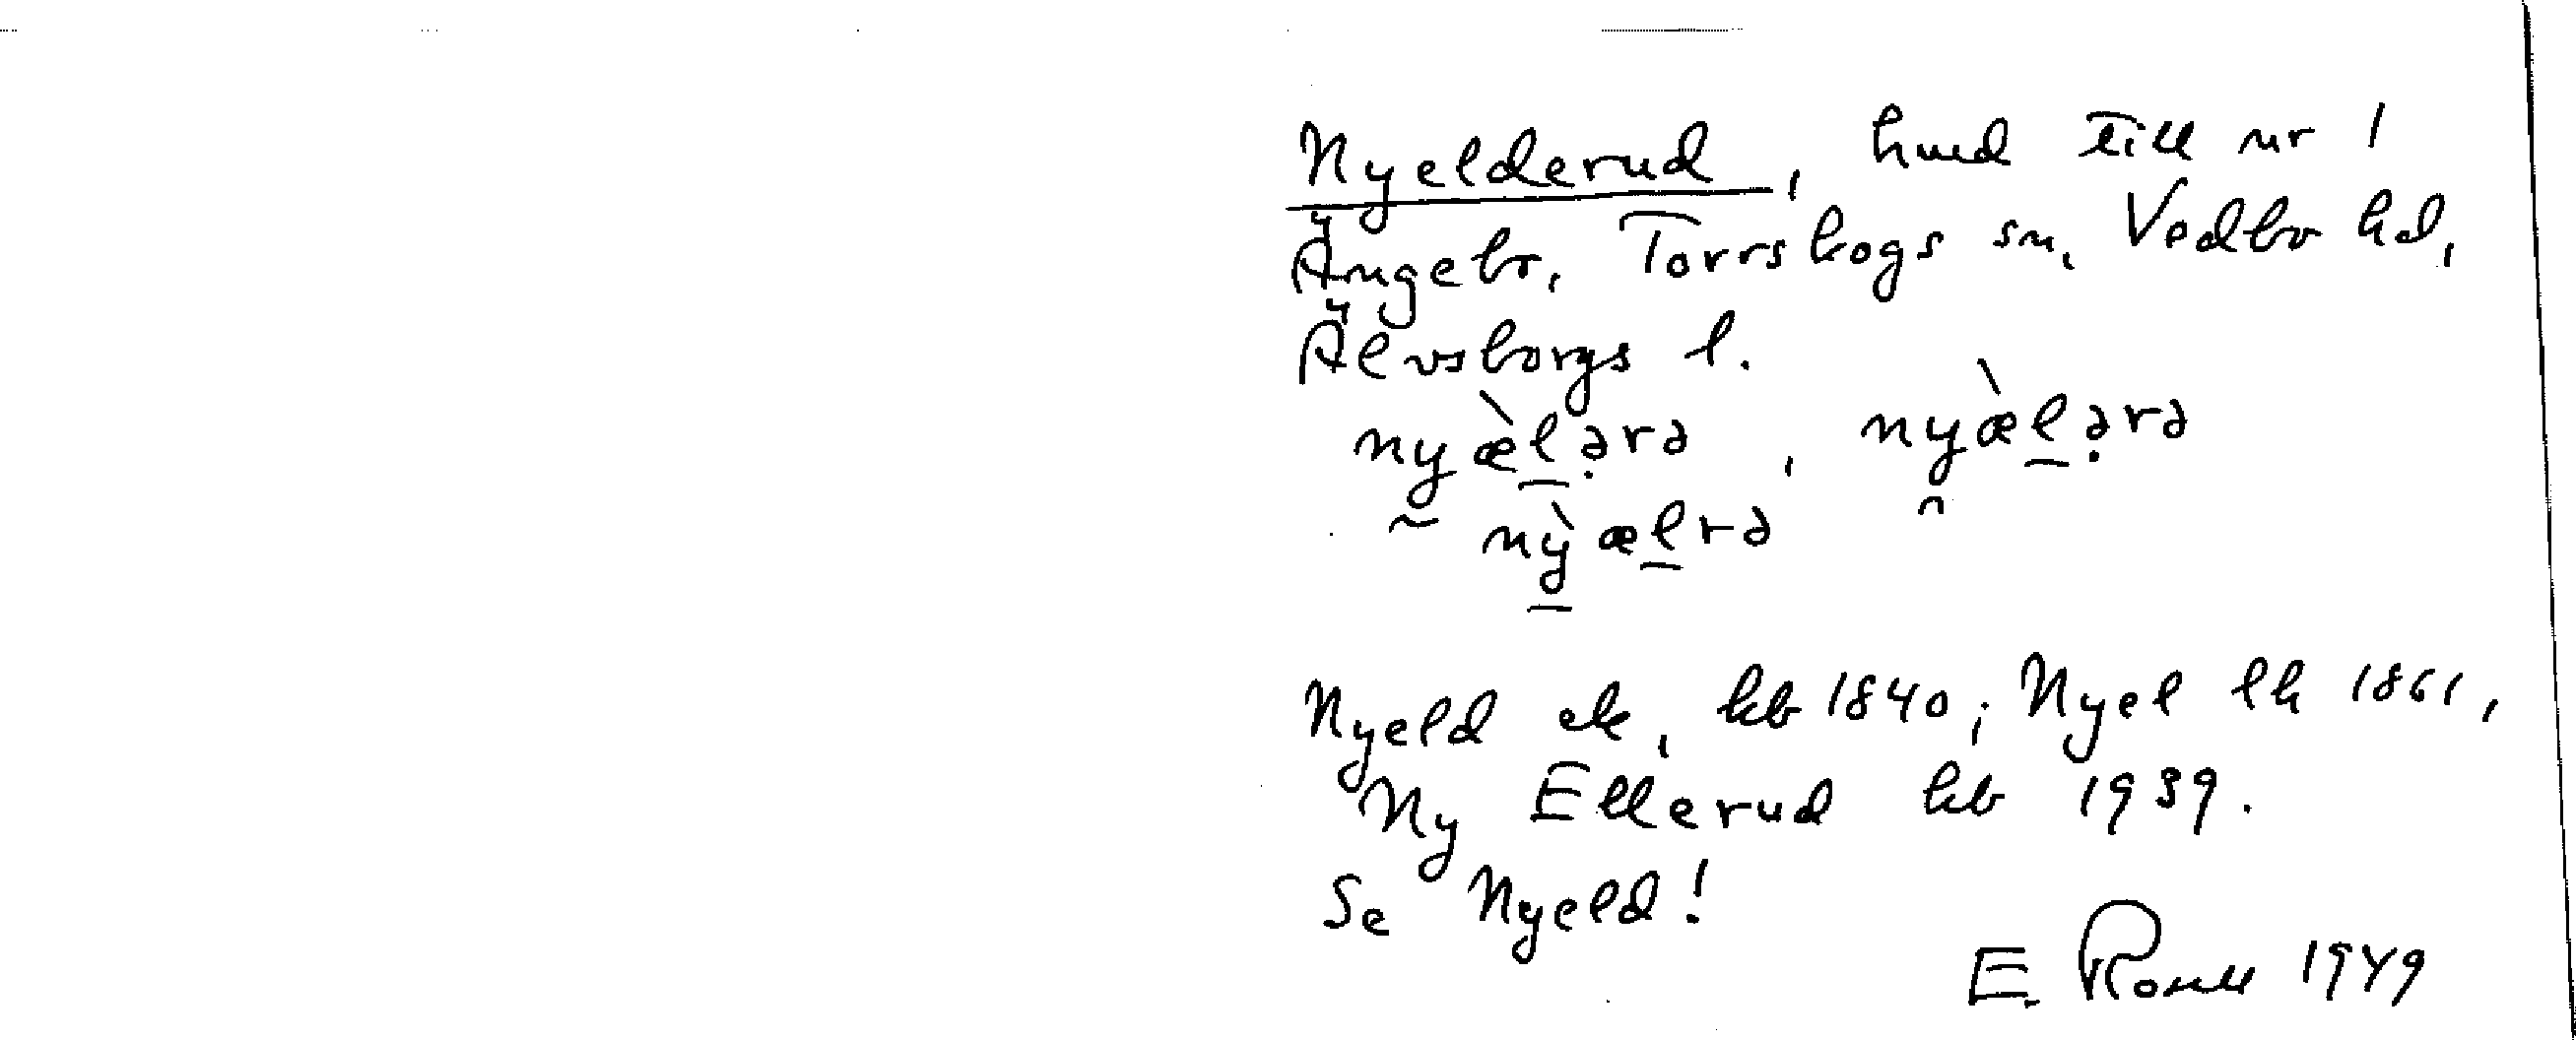 Nyelderud, hmd till nr 1
Ängebr, Torrskogs sn, Vedbo hd,
Älvsborgs l.
nyæ̀l̠ə̣rə, nyæ̀l̠ə̣rə
nỳ̠æl̠rə
Nyeld ek, kb 1840; Nyel lh 1861,
Ny Ellerud kb 1939.
Se Nyeld!
E. 1949